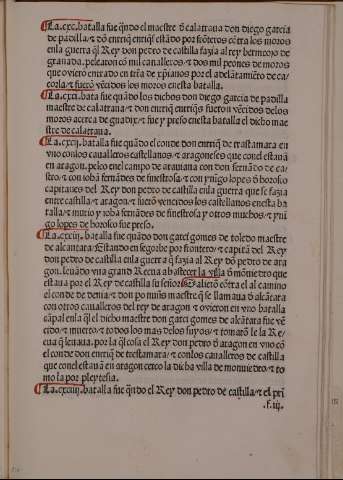 ¶ La.cxc.batalla fue q̃ndo el maestre d̃ calatraua don diego garcia
de padilla ⁊ dõ enrriq̃ enriq̃z estãdo por frõteros cõtra los moros
enla guerra q̃l Rey don pedro de castilla fazia al rey bermejo de
granada. pelearon cõ mil caualleros ⁊ dos mil peones de moros
que ouierõ entrado en trr̃a de xp̃ianos por el adelãtamiẽto de ca-
çorla ⁊ fuerõ vẽcidos los moros enesta batalla.
¶ La.cxci.bata fue quãdo los dichos don diego garcia de padilla
maestre de calatraua ⁊ don enrriq̃ enrriq̃s fueron vẽcidos delos
moros acerca de guadix ⁊ fue y preso enesta batalla el dicho mae
stre de calatraua.
¶ La.cxcij.batalla fue quãdo el conde don enrriq̃ de trastamara en
vno conlos caualleros castellanos ⁊ aragoneses que conel estauã
en aragon. peleo enel campo de arauiana con don fernãdo de ca-
stro ⁊ con iohã fernãdes de finestrosa ⁊ con yñigo lopes d̃ horosco
capitanes del Rey don pedro de castilla enla guerra que se fazia
entre castilla ⁊ aragon ⁊ fuerõ vencidos los castellanos enesta ba
talla ⁊ murio y iohã fernãdes de finestrosa y otros muchos ⁊ yni
go lopes de horosco fue preso.
¶ La.cxciij.batalla fue quãdo don garci gomes de toledo maestre
de alcantara: Estando en segorbe por frontero ⁊ capitã del Rey
don pedro de castilla enla guerra q̃ fazia al Rey dõ pedro de ara
gon. leuãdo vna grand Recua abastecer la villa d̃ mõuiedro que
estaua por el Rey de castilla su señor. Salierõ cõtra el al camino
el con de de denia ⁊ don po muñis maestre q̃ se llamaua d̃ alcãtara
con otros caualleros del rey de aragon ⁊ ouieron en vno batalla
cãpal enla q̃l el dicho maestre don garci gomes de alcãtara fue vẽ
cido ⁊ muerto ⁊ todos los mas delos suyos ⁊ tomarõ le la Re/
cua q̃ leuaua. por la q̃l cosa el Rey don pedro d̃ aragon en vno cõ
el con de don enrriq̃ de trestamara ⁊ conlos caualleros de castilla
que conel estauã en aragon cerco la dicha villa de monuiedro ⁊ to
mo la por pleytesia.
¶ La.cxciiij.batalla fue q̃ndo el Rey don pedro de castilla ⁊ el pri
.f.iij.